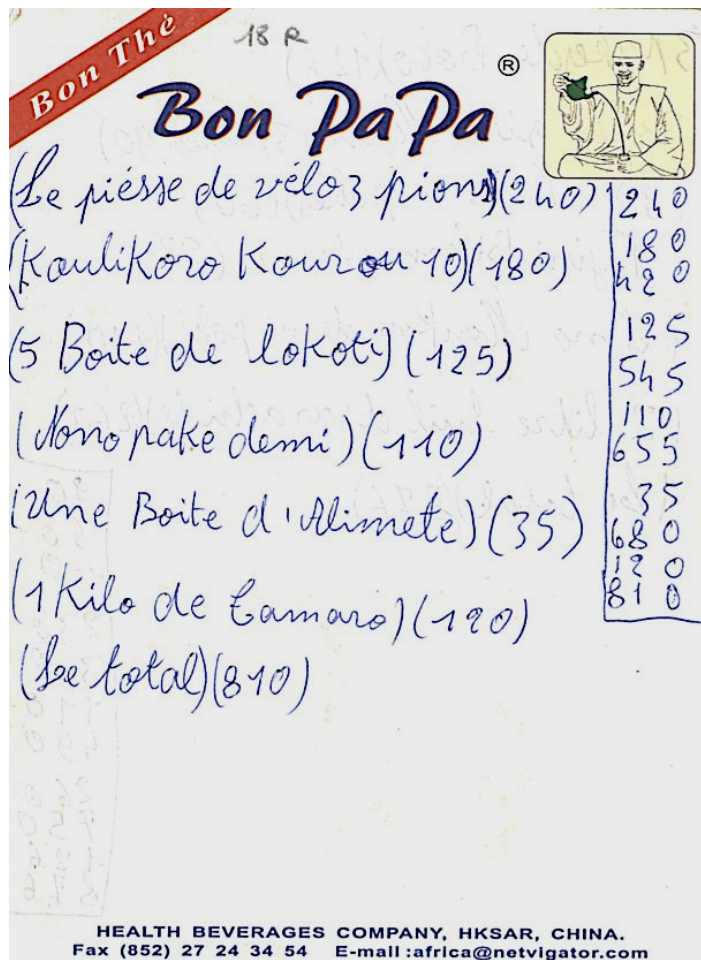 18 R
Bon Thé
®
Bon PaPa
(Le piésse de vélo 3 pions)(240)
(Koulikoro Kourou 10)(180)
(5 Boite de lokoti)(125)
(Nono pake demi)(110)
(Une Boite d'Alimete)(35)
(1 Kilo de tamaro)(120)
(Le total)(810)
240
180
420
125
545
110
655
35
680
120
810
HEALTH BEVERAGES COMPANY, HKSAR, CHINA.
Fax (852) 27 24 34 54 E-mail :africa@netvigator.com